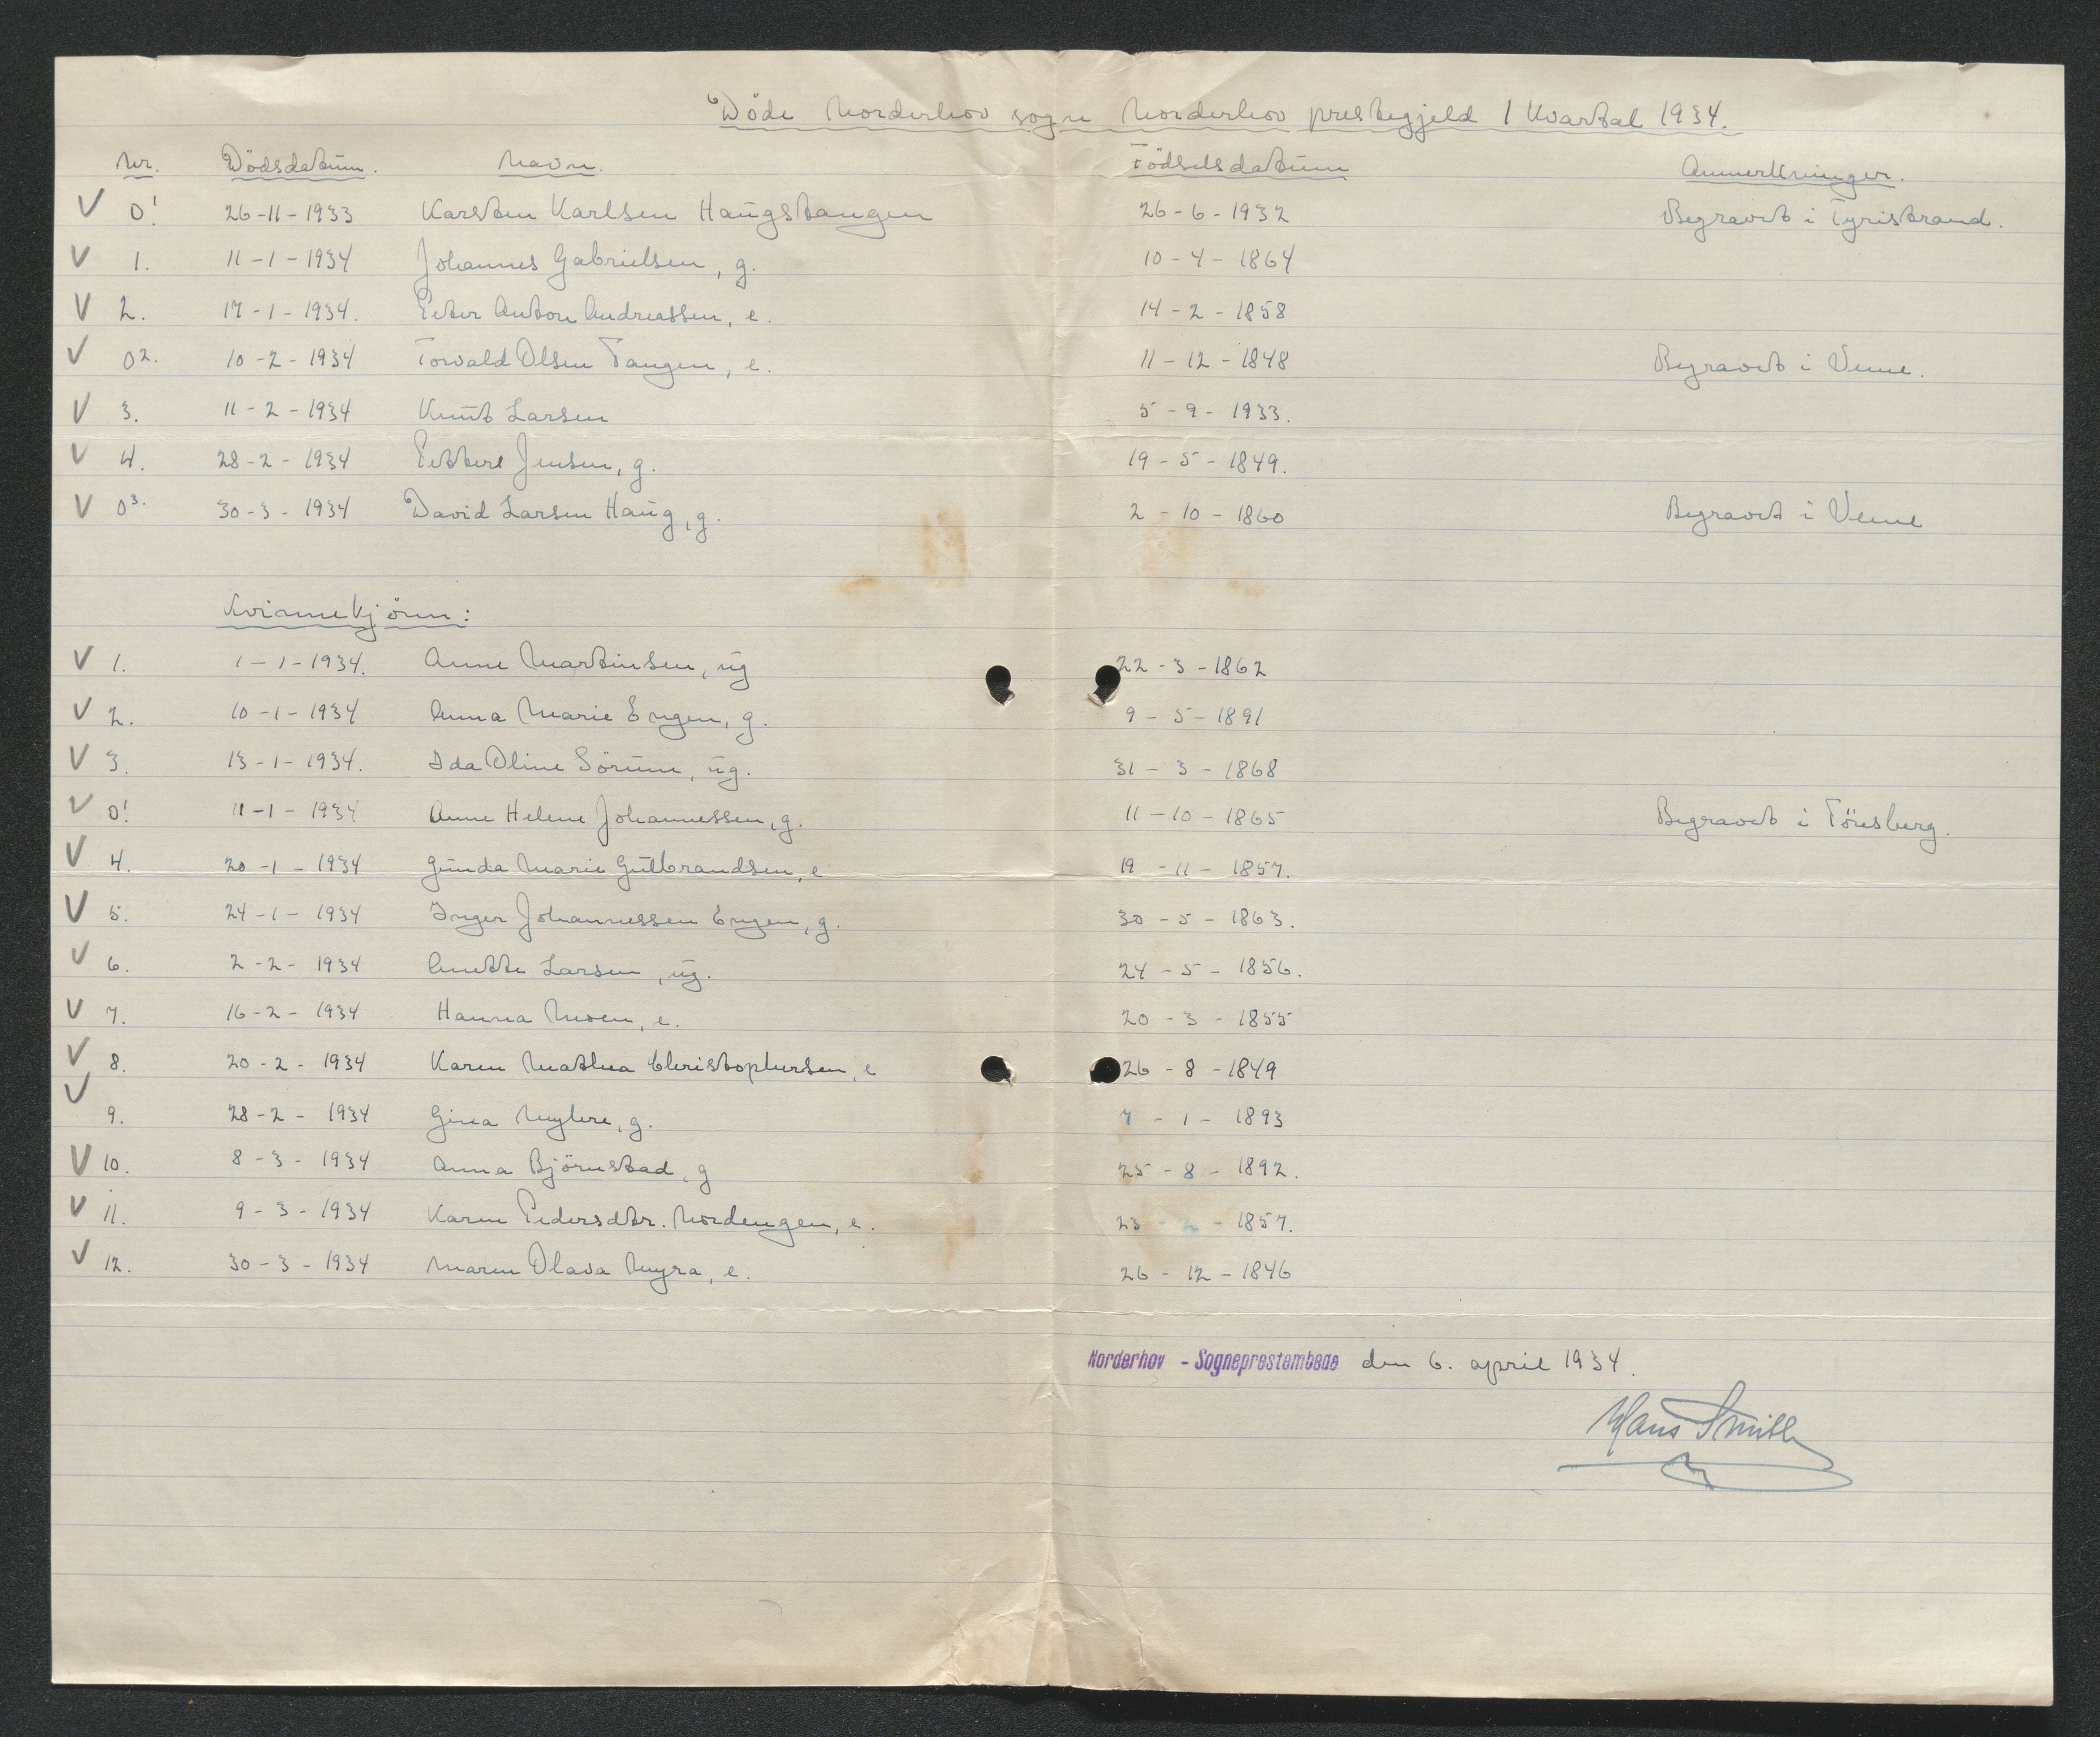 Döde Norderhov sogn Norderhov prestegjeld 1 kvartal 1934.
Nr. Dödsdatum. Navn. Födselsdatum Anmerkninger.
V 0¹ 26-11-1933 Karsten Karlsen Haugstangen 26-6-1932 Begravet i Tyristrand.
V 1. 11-1-1934 Johannes Gabrielsen, g. 10-4-1864
V 2. 17-1-1934. Peter Anton Andreassen, e. 14-2-1858
V 0². 10-2-1934 Torvald Olsen Tangen, e. 11-12-1848 Begravet i Veme.
V 3. 11-2-1934 Knut Larsen 5-9-1933.
V 4. 28-2-1934 Petter Jensen, g. 19-5-1849.
V 0³. 30-3-1934 David Larsen Haug, g. 2-10-1860 Begravet i Veme
Kvinnekjönn:
V 1. 1-1-1934. Anne Martinsen, ug 22-3-1862
V 2. 10-1-1934 Anna Marie Engen, g. 9-5-1891
V 3. 13-1-1934. Ida Oline Sörum, ug. 31-3-1868
V 0¹ 11-1-1934 Anne Helene Johannessen, g. 11-10-1865 Begravet i
V 4. 20-1-1934 Gunda Marie Gulbrandsen, e 19-11-1857.
V 5. 24-1-1934 Inger Johannessen Engen, g. 30-5-1863.
V 6. 2-2-1934 Anette Larsen, ug. 24-5-1856.
V 7. 16-2-1934 Hanna Moen, e. 20-3-1855
V 8. 20-2-1934 Karen Mathea Christophersen, e 26-8-1849
V 9. 28-2-1934 Gina Myhre, g. 7-1-1893
V 10. 8-3-1934 Anna Björnstad, g 25-8-1892.
V 11. 9-3-1934 Karen Pedersdtr. Nordengen, e. 23-2-1857.
V 12. 30-3-1934 Maren Olava Myra, e. 26-12-1846
Norderhov - Sogneprestembede den 6. april 1934.
Hans Smith